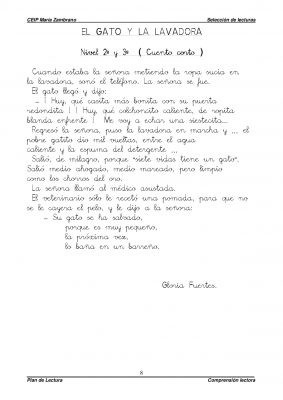 CEIP María Zambrano Selección de lecturas
EL GATO Y LA LAVADORA
Nivel 2º y 3º ( Cuento corto )
Cuando estaba la señora metiendo la ropa sucia en
la lavadora, sonó el teléfono. La señora se fue.
El gato llegó y dijo:
- ¡ Huy, qué casita más bonita con su puerta
redondita ! ¡ Huy, qué colchoncito caliente, de ropita
blanda enfrente ! Me voy a echar una siestecita...
Regresó la señora, puso la lavadora en marcha y ... el
pobre gatito dio mil vueltas, entre el agua
caliente y la espuma del detergente ...
Salió, de milagro, porque "siete vidas tiene un gato".
Salió medio ahogado, medio mareado, pero limpio
como los chorros del oro.
La señora llamó al médico asustada.
El veterinario sólo le recetó una pomada, para que no
se le cayera el pelo, y dijo a la señora:
- Su gato se ha salvado,
porque es muy pequeño,
la próxima vez,
lo baña en un barreño.
Gloria Fuertes.
8
Plan de Lectura Comprensión lectora